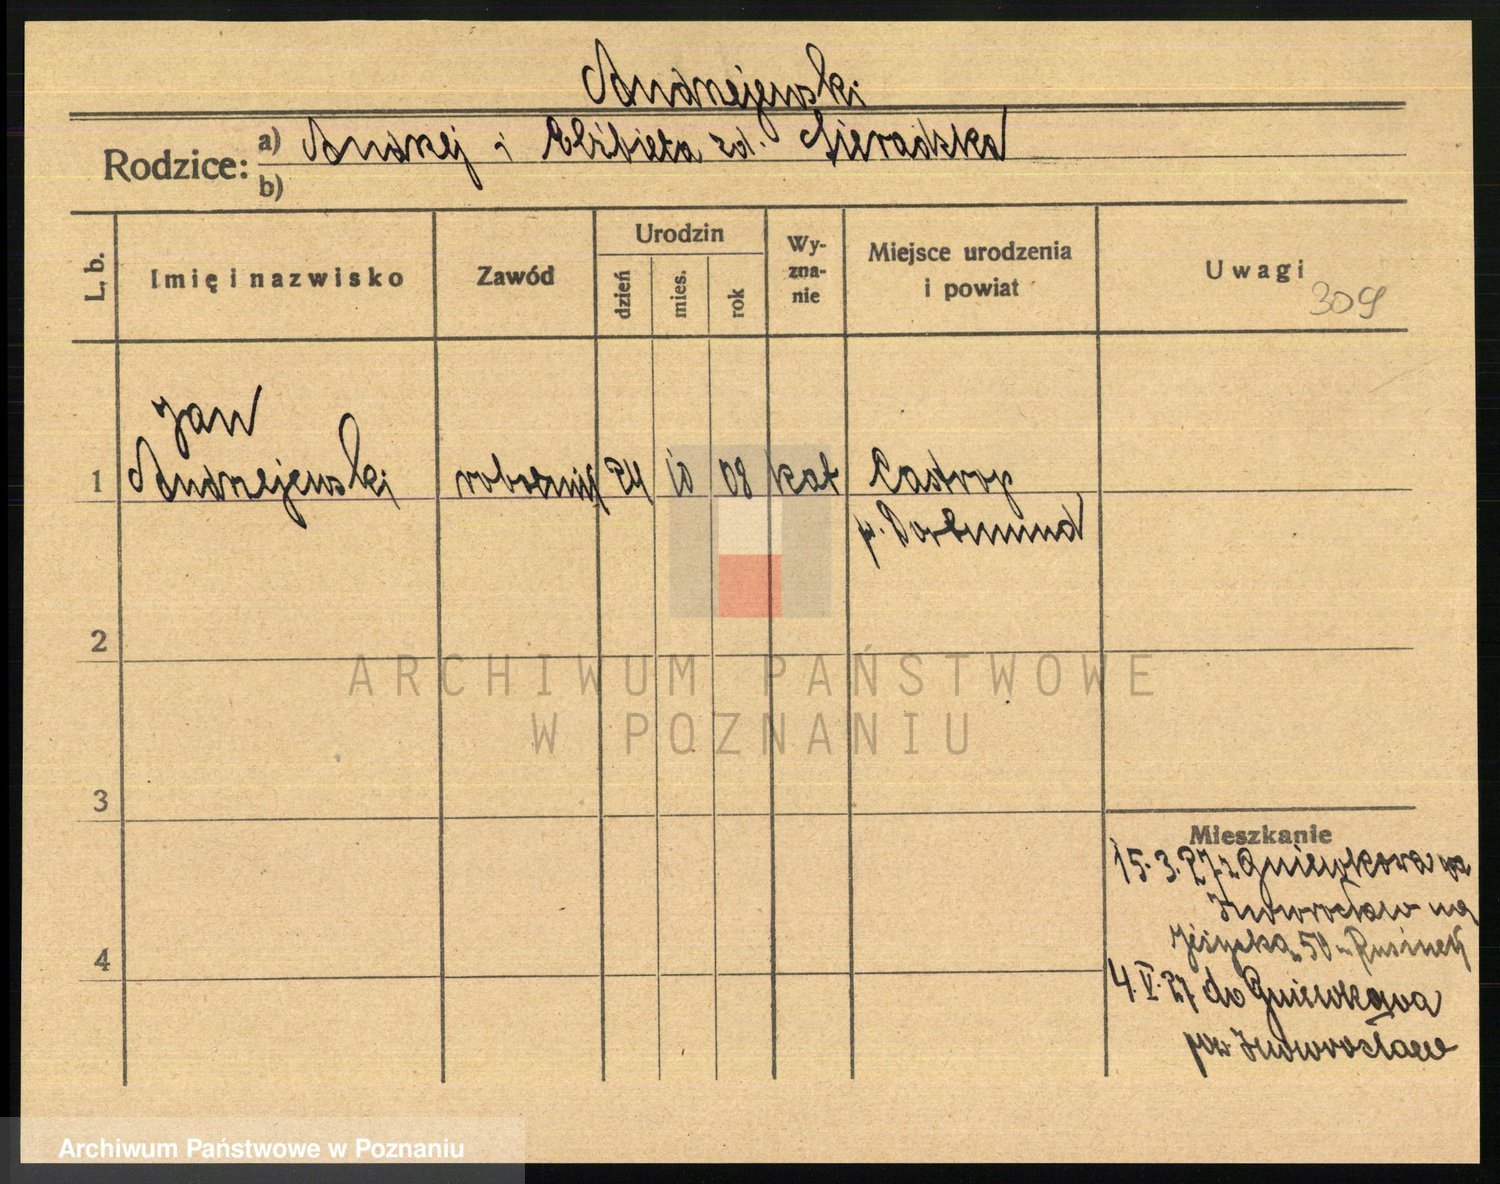 Andrzejewski
Rodzice:
a) Andrzej i Elżbieta zd. Sieradzka
b)
L. b.
Imię i nazwisko
Zawód
Urodzin
dzień
mies.
rok
Wy-
zna-
nie
Miejsce urodzenia
i powiat
Uwagi
309
Jan
1 Andrzejewski robotnik 24 10 08 kat Castrop
p. Dortmund
2
3
4
Mieszkanie
15.3.27 z Gniewkowa
Inowrocław na
50
4.V.27 do Gniewkowa
pow Inowrocław
ARCHIWUM PAŃSTWOWE
W POZNANIU
Archiwum Państwowe w Poznaniu